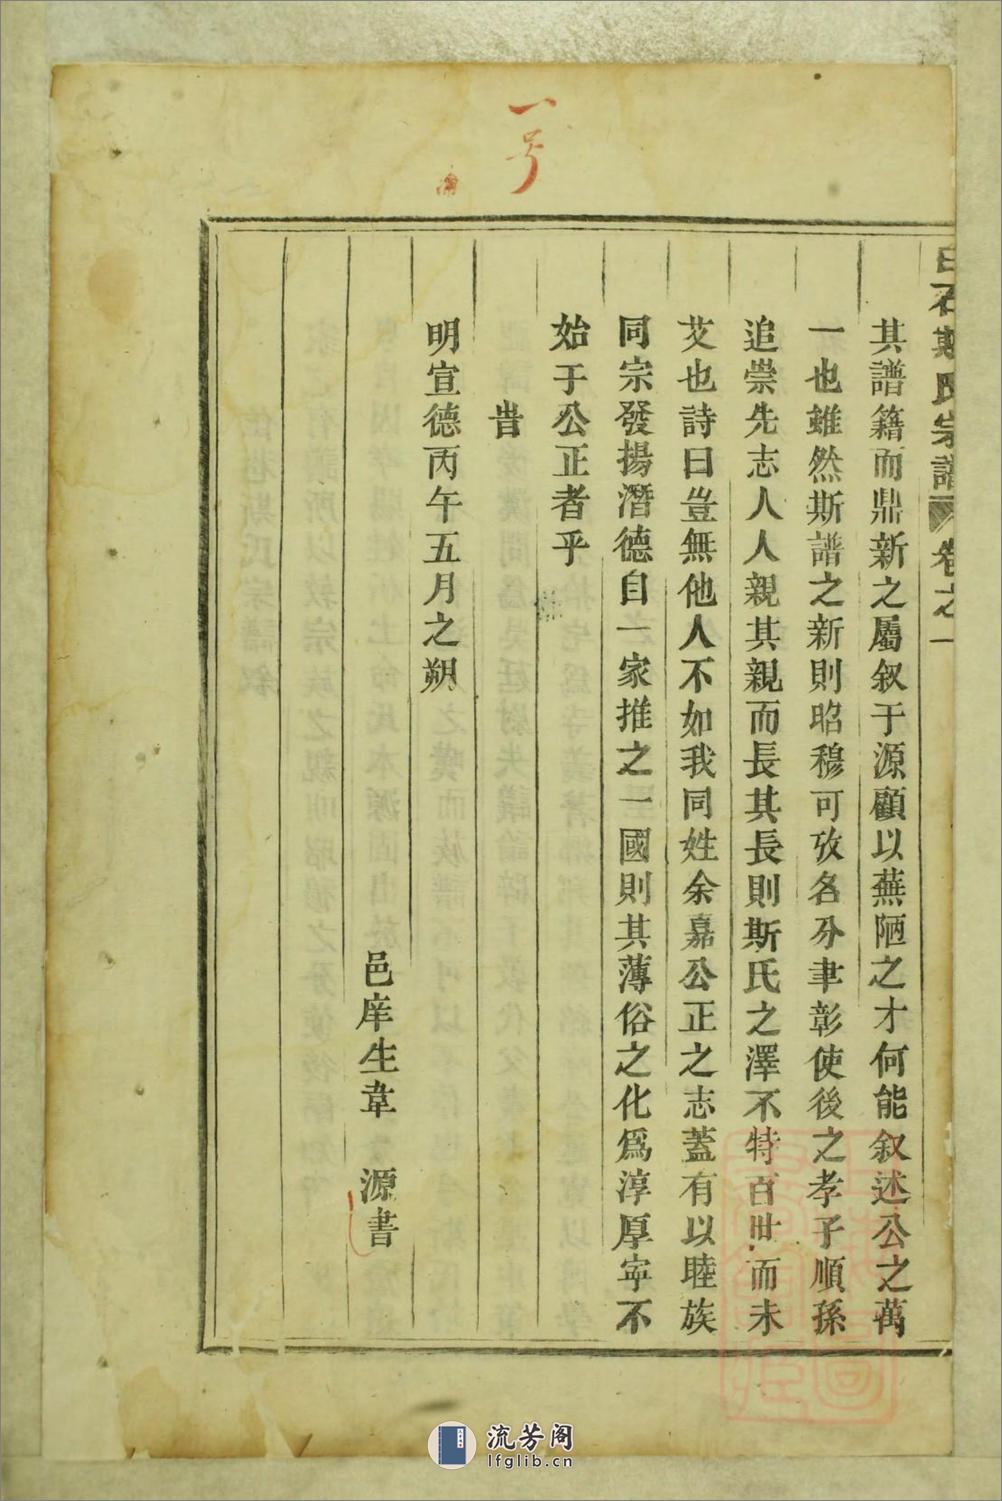 一号
白石斯氏宗譜 卷之一
其譜籍而鼎新之屬叙于源顧以蕪陋之才何能叙述公之萬
一也雖然斯譜之新則昭穆可攷名分聿彰使後之孝子順孫
追崇先志人人親其親而長其長則斯氏之澤不特百世而未
艾也詩曰豈無他人不如我同姓余嘉公正之志蓋有以睦族
同宗發揚潛德自一家推之一國則其薄俗之化爲淳厚寧不
始于公正者乎
旹
明宣德丙午五月之朔
邑庠生韋 源書
流芳阁
lfglib.cn